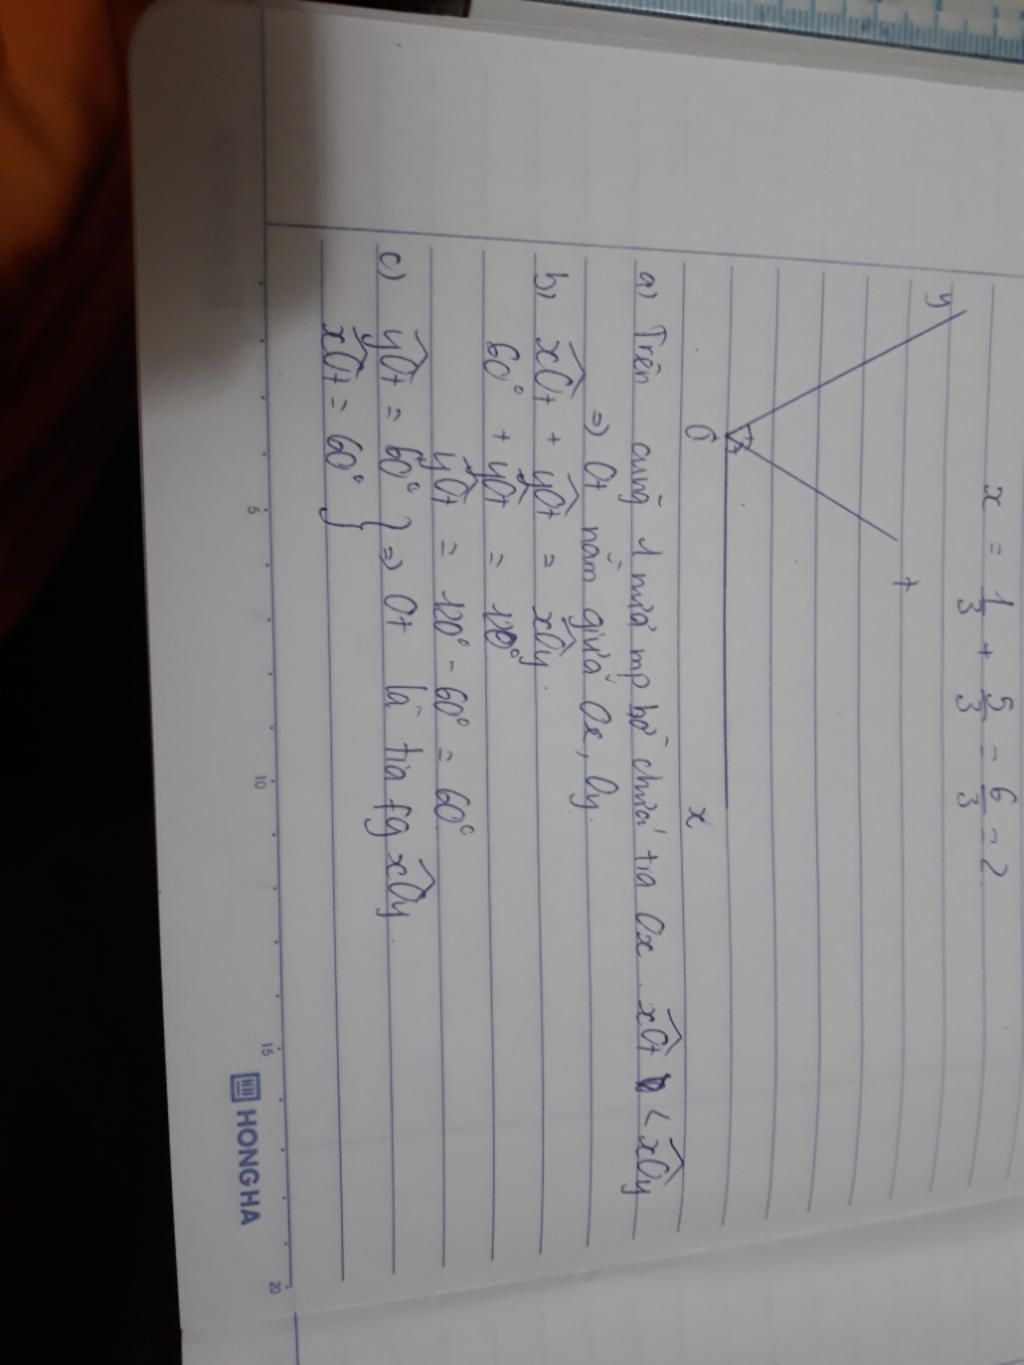 x = 1/3 + 5/3 = 6/3 = 2
y
t
O
x
a) Trên cùng 1 nửa mp bờ chứa tia Ox xOt < xOy
=> Ot nằm giữa Ox, Oy.
b) xOt + yOt = xOy.
60° + yOt = 120°
yOt = 120° - 60° = 60°
c) yOt = 60° } => Ot là tia fg xOy.
xOt = 60° }
5 10 15 20
HONG HA